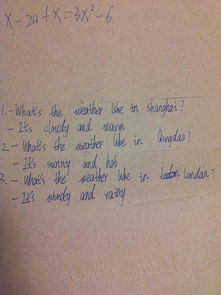 x-2a+x=3x²-6
1.-What's the weather like in Shanghai?
-It's cloudy and warm
2.-What's the weather like in Qingdao?
-It's sunny and hot
3.-What's the weather like in London?
-It's windy and rainy.